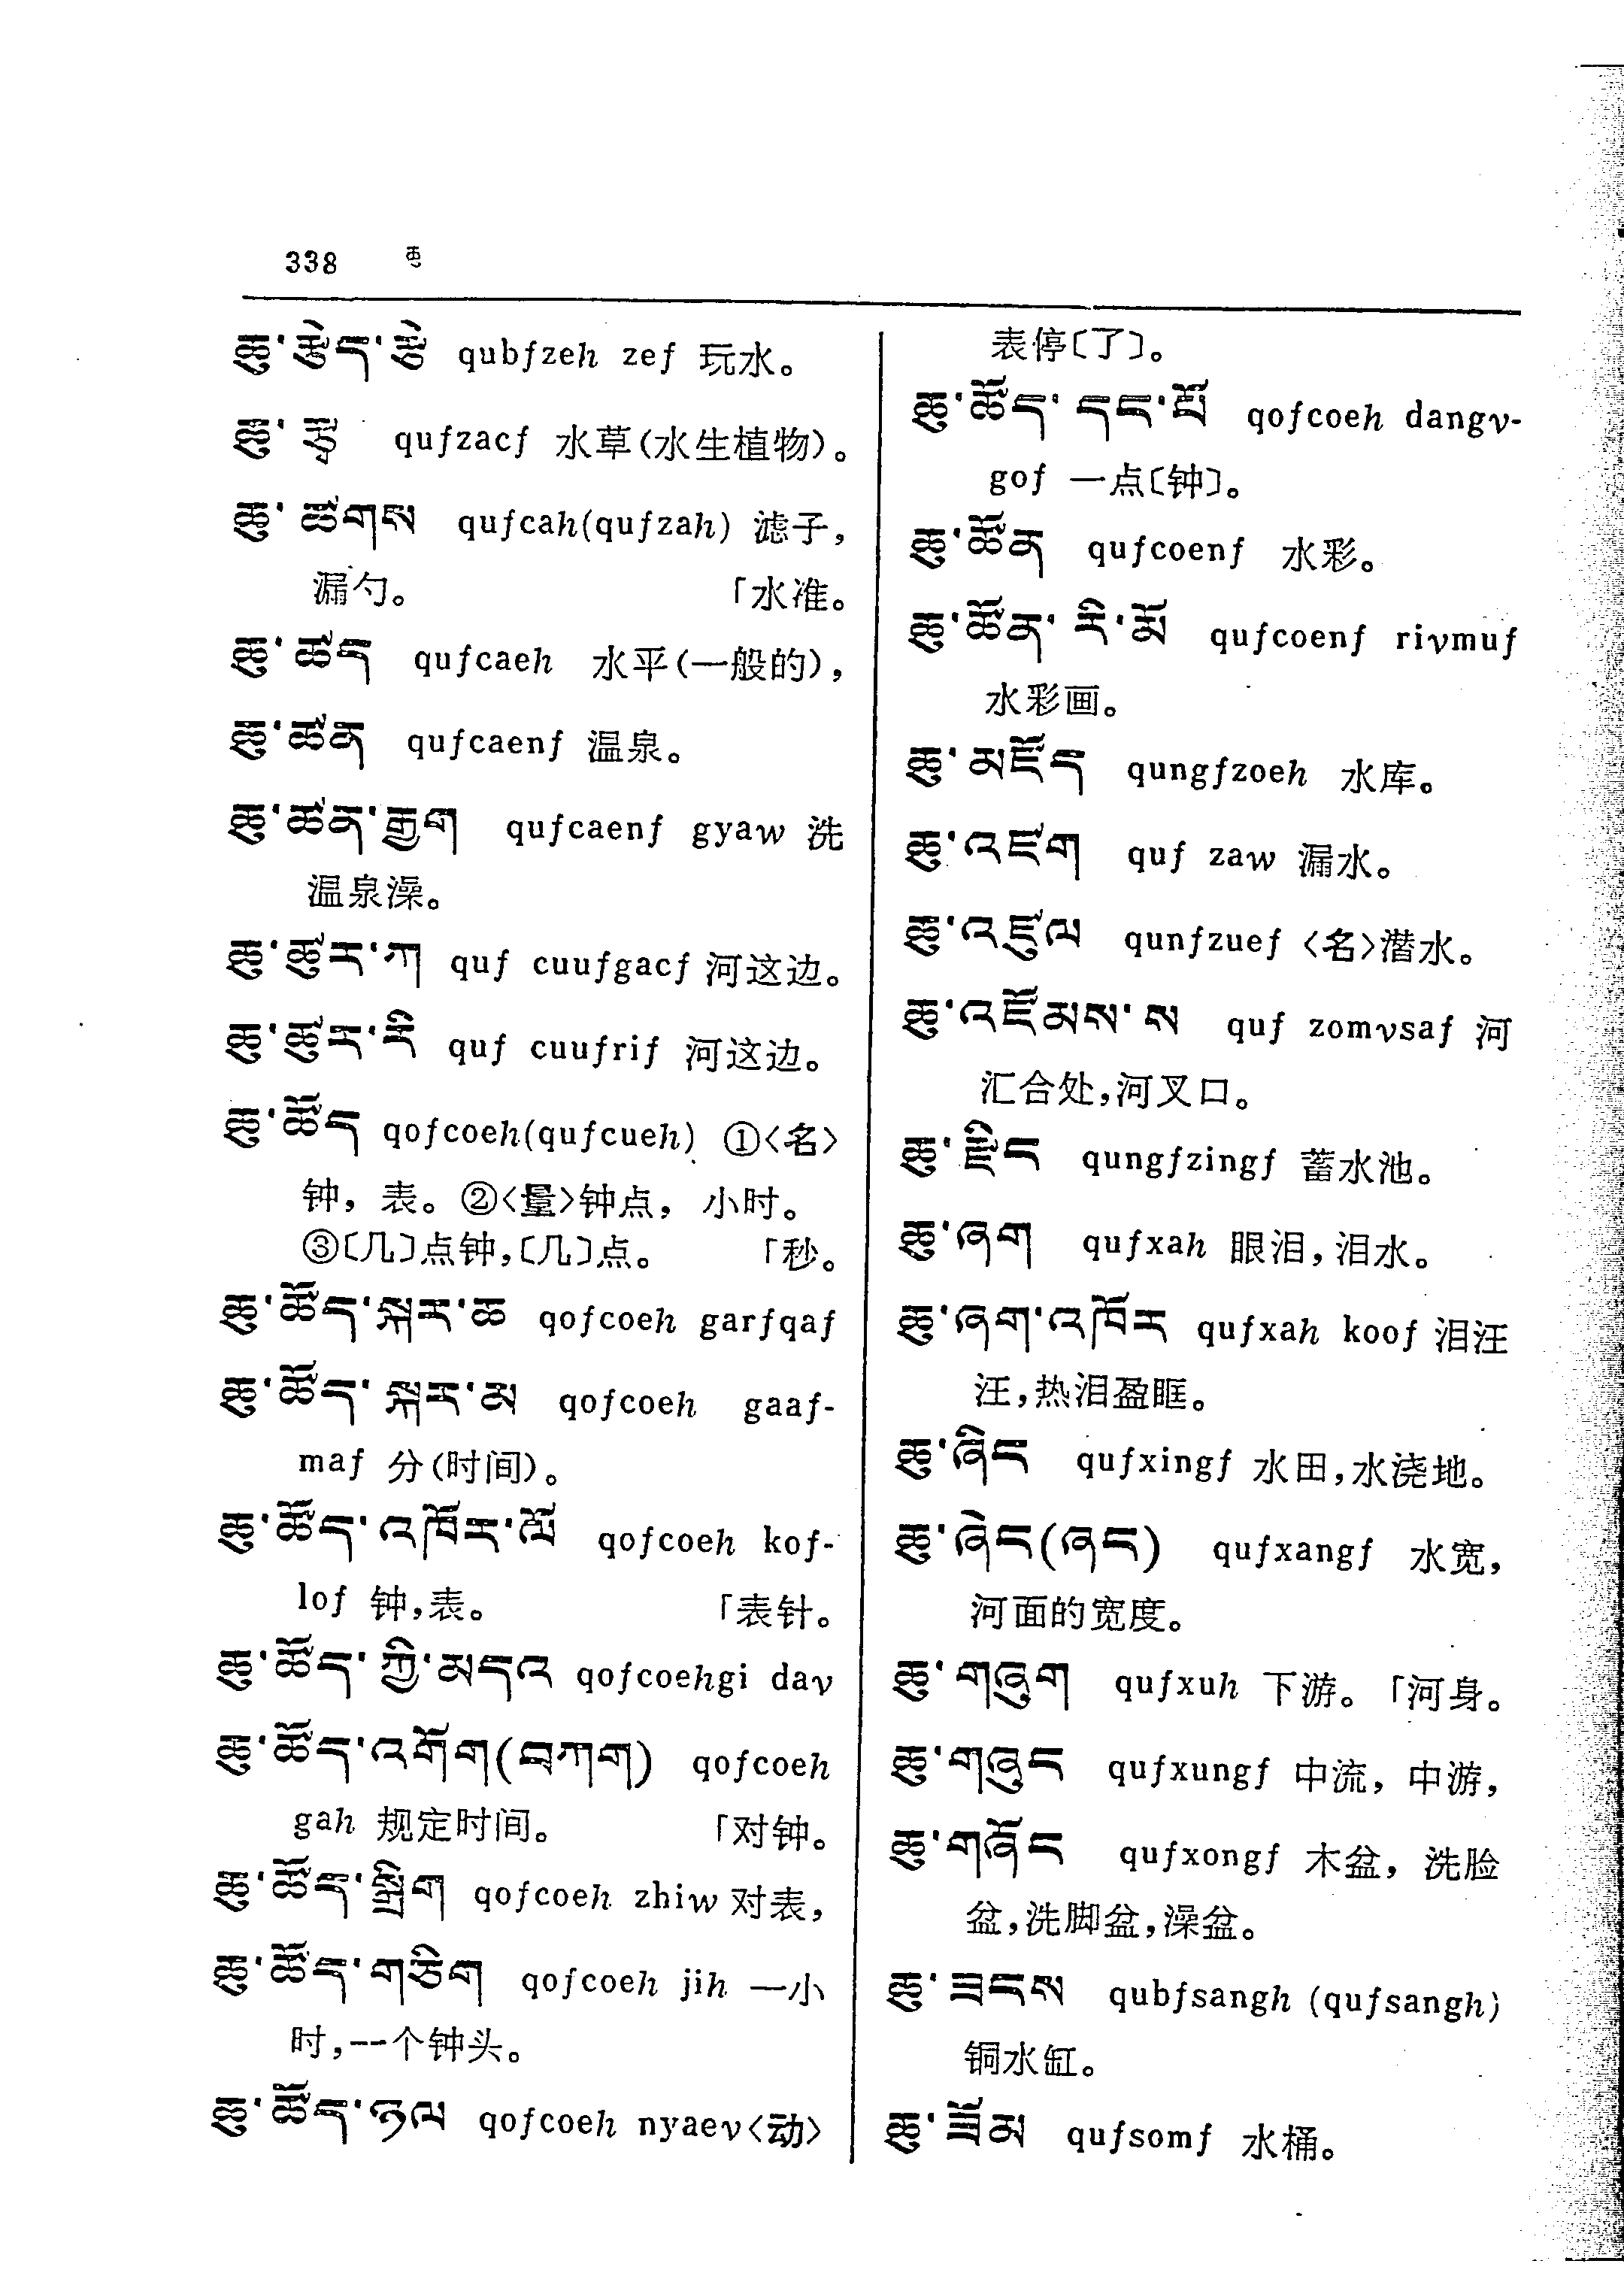 338 ཆུ
ཆུ་རྩེད་རྩེ qubfzeh zef 玩水。
ཆུ་རྩྭ qufzacf 水草(水生植物)。
ཆུ་ཚགས qufcah(qufzah) 滤子,
漏勺。 「水准。
ཆུ་ཚད qufcaeh 水平(一般的),
ཆུ་ཚན qufcaenf 温泉。
ཆུ་ཚན་རྒྱག qufcaenf gyaw 洗
温泉澡。
ཆུ་ཚུར་ཀ quf cuufgacf 河这边。
ཆུ་ཚུར་རི quf cuufrif 河这边。
ཆུ་ཚོད qofcoeh(qufcueh) ①〈名〉
钟, 表。②〈量〉钟点, 小时。
③〔几〕点钟,〔几〕点。 「秒。
ཆུ་ཚོད་སྐར་ཆ qofcoeh garfqaf
ཆུ་ཚོད་སྐར་མ qofcoeh gaaf-
maf 分(时间)。
ཆུ་ཚོད་འཁོར་ལོ qofcoeh kof-
lof 钟,表。 「表针。
ཆུ་ཚོད་ཀྱི་མདའ qofcoehgi dav
ཆུ་ཚོད་འགོག(བཀག) qofcoeh
gah 规定时间。 「对钟。
ཆུ་ཚོད་སྒྲིག qofcoeh zhiw 对表,
ཆུ་ཚོད་གཅིག qofcoeh jih 一小
时,一个钟头。
ཆུ་ཚོད་ཉལ qofcoeh nyaev〈动〉
表停〔了〕。
ཆུ་ཚོད་དང་པོ qofcoeh dangv-
gof 一点〔钟〕。
ཆུ་ཚོན qufcoenf 水彩。
ཆུ་ཚོན་རི་མོ qufcoenf rivmuf
水彩画。
ཆུ་མཛོད qungfzoeh 水库。
ཆུ་འཛག quf zaw 漏水。
ཆུ་འཛུལ qunfzuef 〈名〉潜水。
ཆུ་འཛོམས་ས quf zomvsaf 河
汇合处,河叉口。
ཆུ་རྫིང qungfzingf 蓄水池。
ཆུ་ཞག qufxah 眼泪,泪水。
ཆུ་ཞག་འཁོར qufxah koof 泪汪
汪,热泪盈眶。
ཆུ་ཞིང qufxingf 水田,水浇地。
ཆུ་ཞེང(ཞང) qufxangf 水宽,
河面的宽度。
ཆུ་གཞུག qufxuh 下游。「河身。
ཆུ་གཞུང qufxungf 中流, 中游,
ཆུ་གཞོང qufxongf 木盆, 洗脸
盆,洗脚盆,澡盆。
ཆུ་ཟངས qubfsangh (qufsangh)
铜水缸。
ཆུ་ཟོམ qufsomf 水桶。